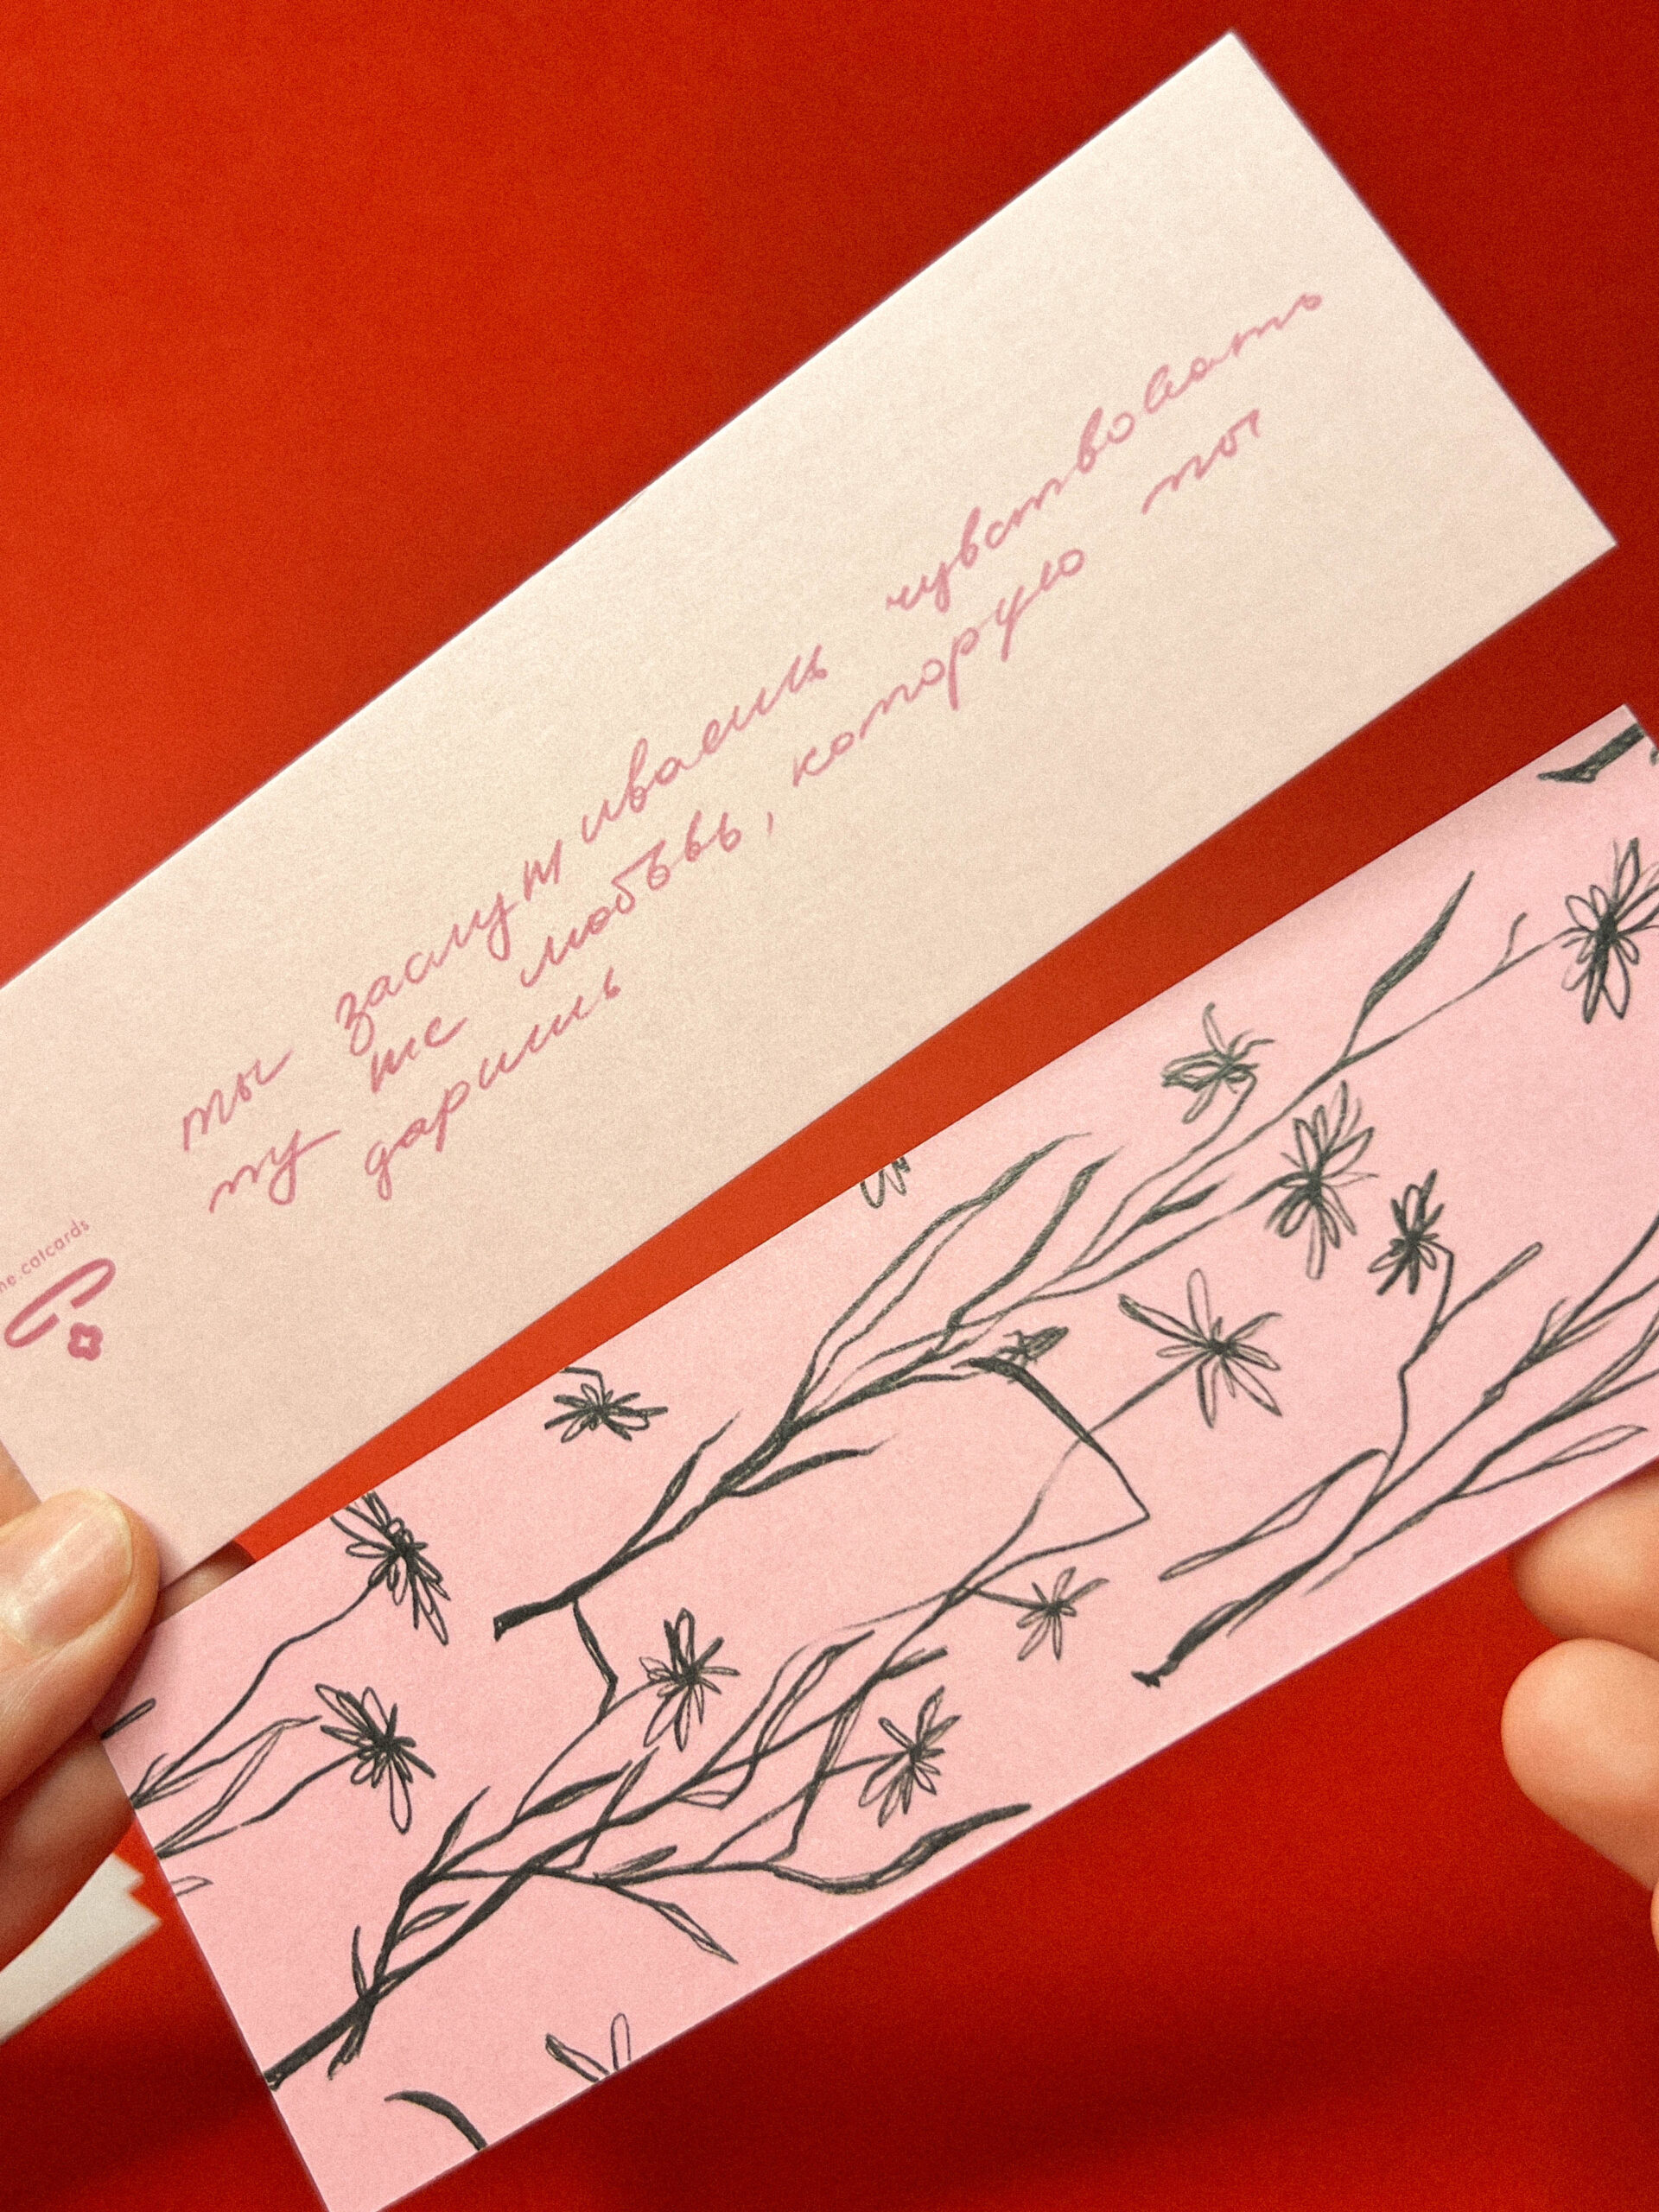 ты заслуживаешь чувствовать
ту же любовь, которую ты
даришь